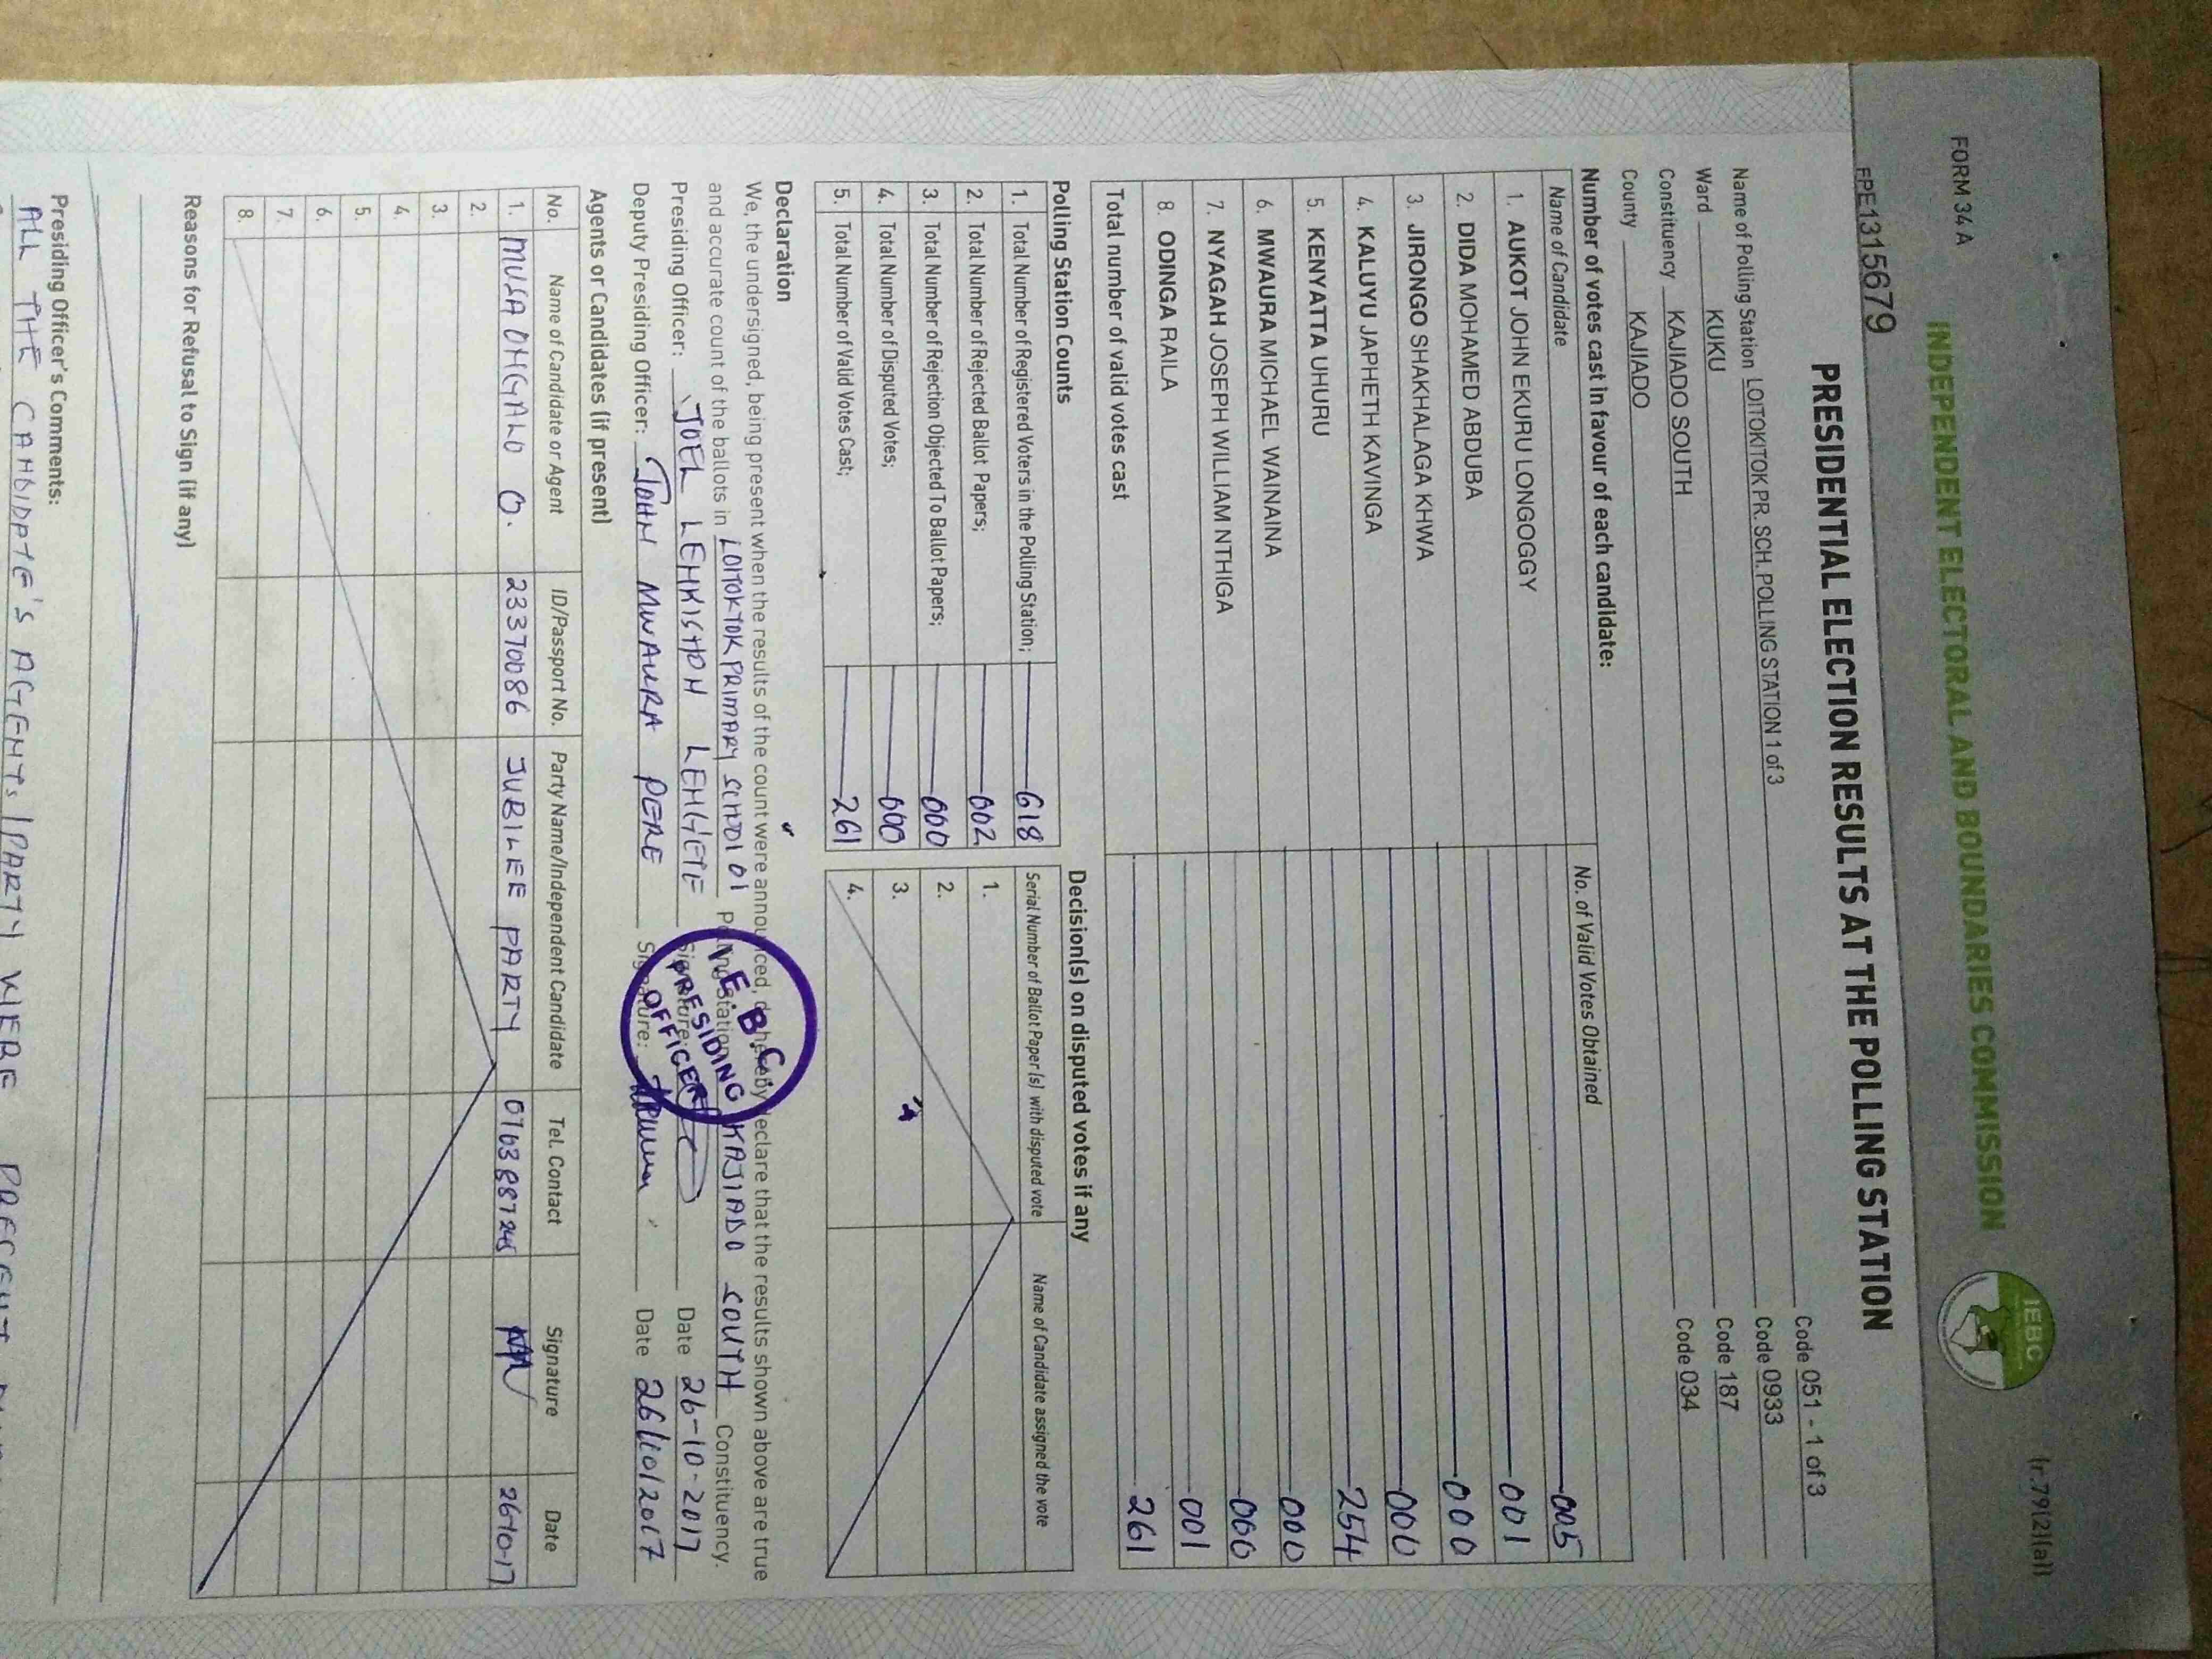 FORM 34 A
(r.79(2)(a))
INDEPENDENT ELECTORAL AND BOUNDARIES COMMISSION
IEBC
FPE1315679
PRESIDENTIAL ELECTION RESULTS AT THE POLLING STATION
Name of Polling Station LOITOKITOK PR. SCH. POLLING STATION 1 of 3 Code 051 - 1 of 3
Ward KUKU Code 0933
Constituency KAJIADO SOUTH Code 187
County KAJIADO Code 034
Number of votes cast in favour of each candidate:
Name of Candidate No. of Valid Votes Obtained
1. AUKOT JOHN EKURU LONGOGGY 005
2. DIDA MOHAMED ABDUBA 001
3. JIRONGO SHAKHALAGA KHWA 000
4. KALUYU JAPHETH KAVINGA 000
5. KENYATTA UHURU 254
6. MWAURA MICHAEL WAINAINA 000
7. NYAGAH JOSEPH WILLIAM NTHIGA 000
8. ODINGA RAILA 001
Total number of valid votes cast 261
Polling Station Counts
1. Total Number of Registered Voters in the Polling Station; 618
2. Total Number of Rejected Ballot Papers; 002
3. Total Number of Rejection Objected To Ballot Papers; 000
4. Total Number of Disputed Votes; 000
5. Total Number of Valid Votes Cast; 261
Decision(s) on disputed votes if any
Serial Number of Ballot Paper (s) with disputed vote Name of Candidate assigned the vote
1.
2.
3.
4.
Declaration
We, the undersigned, being present when the results of the count were announced, do hereby declare that the results shown above are true
and accurate count of the ballots in LOITOKTOK PRIMARY SCHOOL 01 Polling Station KAJIADO SOUTH Constituency.
Presiding Officer: JOEL LEHKISHON LEHGETE Signature: Date 26-10-2017
Deputy Presiding Officer: JOHN MWAURA PERE Signature: Date 26/10/2017
I.E.B.C.
PRESIDING
OFFICER
Agents or Candidates (if present)
No. Name of Candidate or Agent ID/Passport No. Party Name/Independent Candidate Tel. Contact Signature Date
1. MUSA OHGALO O. 23370086 JUBILEE PARTY 26-10-17
2.
3.
4.
5.
6.
7.
8.
Reasons for Refusal to Sign (if any)
Presiding Officer's Comments:
ALL THE CANDIDATE'S AGENTS/PARTY WERE PRESENT